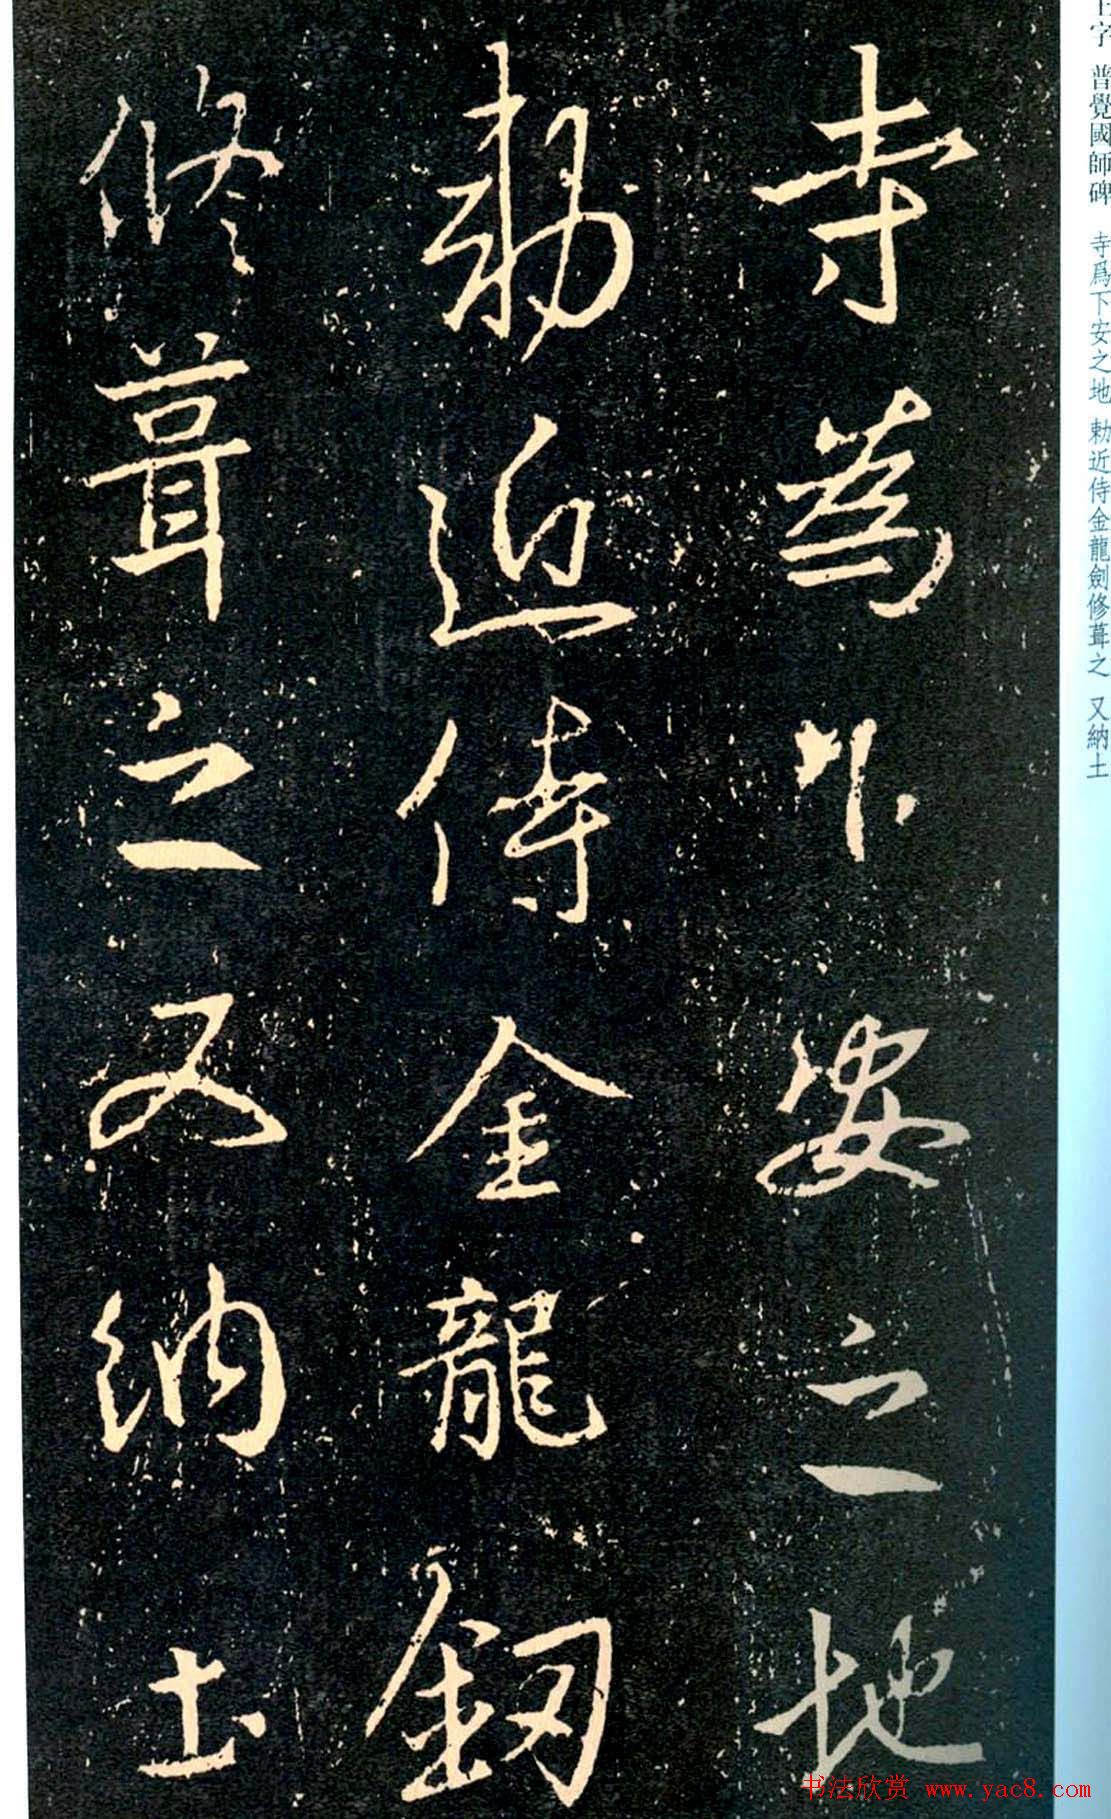 寺爲下安之地
勅近侍金龍釼
修葺之又納土
王字 普覺國師碑 寺爲下安之地 勅近侍金龍劍修葺之 又納土
书法欣赏 www.yac8.com